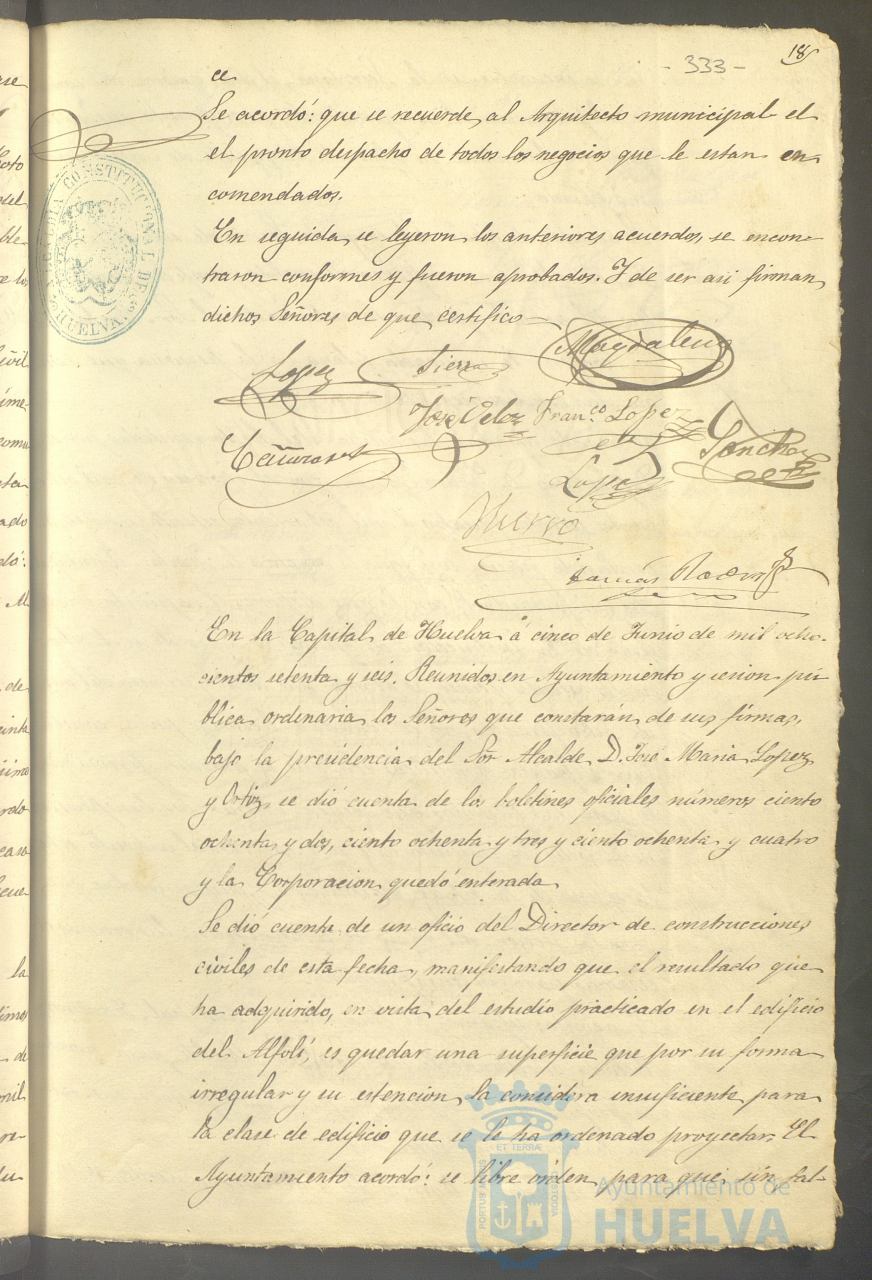 18
- 333 -
ce
Se acordó: que se recuerde al Arquitecto municipal el
el pronto despacho de todos los negocios que le estan en
comendados.
En seguida se leyeron los anteriores acuerdos, se encon-
traron conformes y fueron aprobados. Y de ser asi firman
dichos Señores de que certifico
ALCALDIA CONSTITUCIONAL DE HUELVA
Lopez Sierra Magdalena
José Velez Franco. Lopez
Sanchez
Lopez
Hierro
Tomás
En la Capital de Huelva á cinco de Junio de mil ocho-
cientos setenta y seis. Reunidos en Ayuntamiento y sesion pú
blica ordinaria los Señores que constarán de sus firmas,
bajo la presidencia del Sor Alcalde D. José Maria Lopez
y Ortiz, se dió cuenta de los boletines oficiales números ciento
ochenta y dos, ciento ochenta y tres y ciento ochenta y cuatro
y la Corporacion quedó enterada.
Se dió cuenta de un oficio del Director de construcciones
civiles de esta fecha, manifestando que el resultado que
ha adquirido, en vista del estudio practicado en el edificio
del Alfolí, es quedar una superficie que por su forma
irregular y su estencion, la considera insuficiente para
la clase de edificio que se le ha ordenado proyectar. El
Ayuntamiento acordó: se libre órden para que sin fal-
ET TERRAE
PORTUS CUSTODIA
Ayuntamiento de
HUELVA